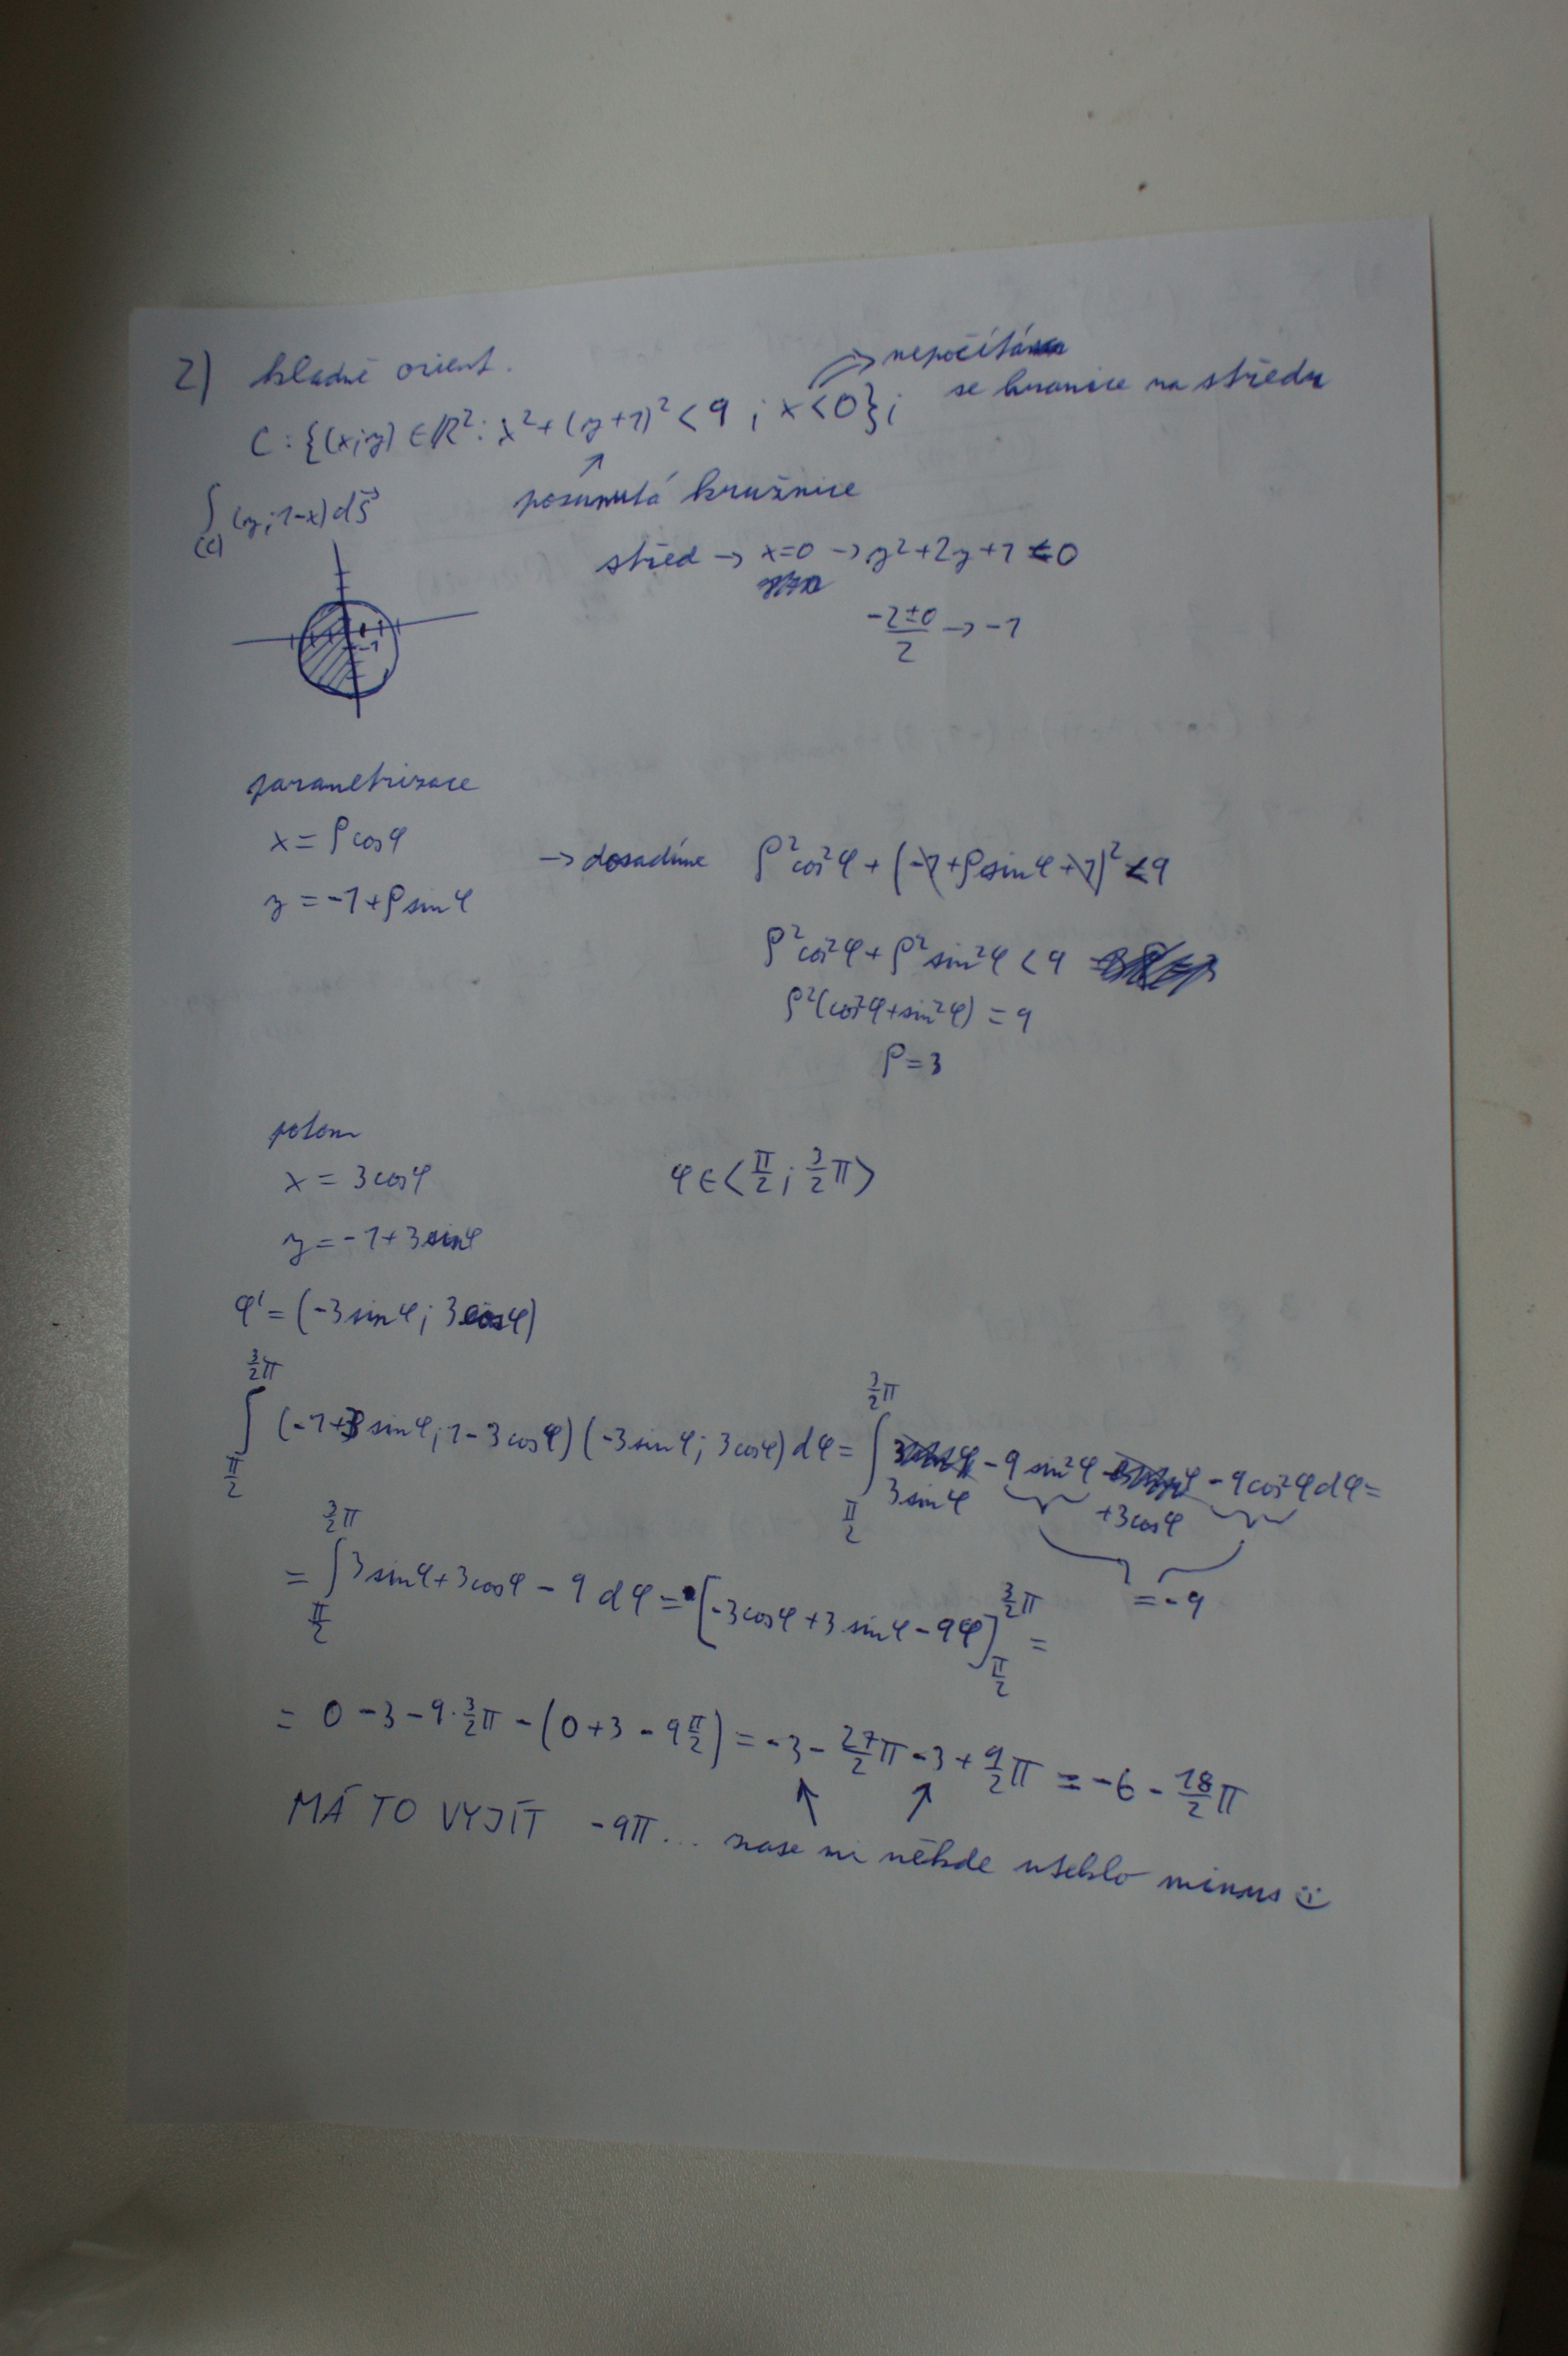 2) kladně orient.
C: {(x;y) ∈ R²: x² + (y+1)² < 9 ; x < 0};
→ nepočítá
se hranice na středu
∫(C) (y; 1-x) ds⃗
posunutá kružnice
střed → x=0 → y²+2y+1 = 0
(-2±0)/2 → -1
-1
parametrizace
x = ρ cosφ
y = -1 + ρ sinφ
→ dosadíme ρ²cos²φ + (-1 + ρ sinφ + 1)² < 9
ρ²cos²φ + ρ²sin²φ < 9
ρ²(cos²φ + sin²φ) = 9
ρ = 3
potom
x = 3cosφ
y = -1 + 3sinφ
φ ∈ ⟨π/2 ; 3/2 π⟩
φ' = (-3sinφ; 3cosφ)
∫_{π/2}^{3/2 π} (-1+3sinφ; 1-3cosφ)(-3sinφ; 3cosφ) dφ = ∫_{π/2}^{3/2 π} 3sinφ - 9sin²φ + 3cosφ - 9cos²φ dφ =
= -9
= ∫_{π/2}^{3/2 π} 3sinφ + 3cosφ - 9 dφ = [-3cosφ + 3sinφ - 9φ]_{π/2}^{3/2 π} =
= 0 - 3 - 9·3/2 π - (0 + 3 - 9 π/2) = -3 - 27/2 π - 3 + 9/2 π = -6 - 18/2 π
MÁ TO VYJÍT -9π... zase mi někde uteklo minus :)